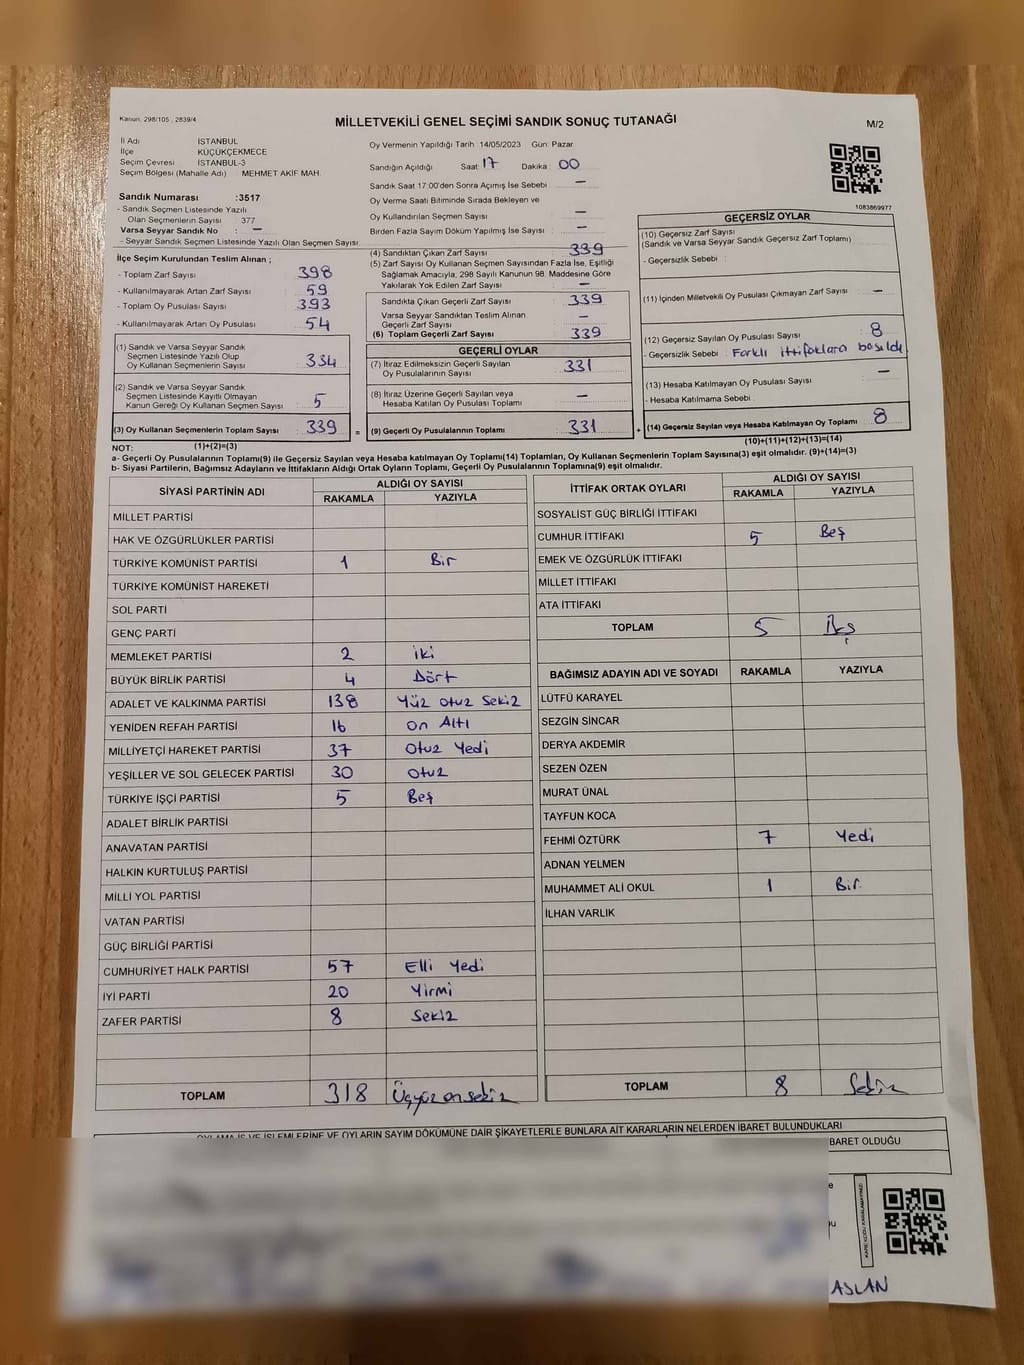 Kanun, 298/105 , 2839/4
MİLLETVEKİLİ GENEL SEÇİMİ SANDIK SONUÇ TUTANAĞI
M/2
İl Adı İSTANBUL
İlçe KÜÇÜKÇEKMECE
Seçim Çevresi İSTANBUL-3
Seçim Bölgesi (Mahalle Adı) MEHMET AKİF MAH.
Sandık Numarası :3517
- Sandık Seçmen Listesinde Yazılı
Olan Seçmenlerin Sayısı 377
Varsa Seyyar Sandık No : —
- Seyyar Sandık Seçmen Listesinde Yazılı Olan Seçmen Sayısı:
Oy Vermenin Yapıldığı Tarih 14/05/2023 Gün: Pazar
Sandığın Açıldığı Saat: 17 Dakika: 00
Sandık Saat 17:00'den Sonra Açımış İse Sebebi —
Oy Verme Saati Bitiminde Sırada Bekleyen ve
Oy Kullandırılan Seçmen Sayısı —
Birden Fazla Sayım Döküm Yapılmış İse Sayısı —
1083869977
İlçe Seçim Kurulundan Teslim Alınan ;
- Toplam Zarf Sayısı 398
- Kullanılmayarak Artan Zarf Sayısı 59
- Toplam Oy Pusulası Sayısı 393
- Kullanılmayarak Artan Oy Pusulası 54
(1) Sandık ve Varsa Seyyar Sandık
Seçmen Listesinde Yazılı Olup
Oy Kullanan Seçmenlerin Sayısı 334
(2) Sandık ve Varsa Seyyar Sandık
Seçmen Listesinde Kayıtlı Olmayan
Kanun Gereği Oy Kullanan Seçmen Sayısı 5
(3) Oy Kullanan Seçmenlerin Toplam Sayısı 339 =
(1)+(2)=(3)
(4) Sandıktan Çıkan Zarf Sayısı 339
(5) Zarf Sayısı Oy Kullanan Seçmen Sayısından Fazla İse, Eşitliği
Sağlamak Amacıyla, 298 Sayılı Kanunun 98. Maddesine Göre
Yakılarak Yok Edilen Zarf Sayısı —
Sandıkta Çıkan Geçerli Zarf Sayısı 339
Varsa Seyyar Sandıktan Teslim Alınan
Geçerli Zarf Sayısı —
(6) Toplam Geçerli Zarf Sayısı 339
GEÇERLİ OYLAR
(7) İtiraz Edilmeksizin Geçerli Sayılan
Oy Pusulalarının Sayısı 331
(8) İtiraz Üzerine Geçerli Sayılan veya
Hesaba Katılan Oy Pusulası Toplamı —
(9) Geçerli Oy Pusulalarının Toplamı 331 +
GEÇERSİZ OYLAR
(10) Geçersiz Zarf Sayısı
(Sandık ve Varsa Seyyar Sandık Geçersiz Zarf Toplamı)
- Geçersizlik Sebebi :
(11) İçinden Milletvekili Oy Pusulası Çıkmayan Zarf Sayısı —
(12) Geçersiz Sayılan Oy Pusulası Sayısı 8
- Geçersizlik Sebebi : Farklı ittifaklara basıldı
(13) Hesaba Katılmayan Oy Pusulası Sayısı —
- Hesaba Katılmama Sebebi :
(14) Geçersiz Sayılan veya Hesaba Katılmayan Oy Toplamı 8
(10)+(11)+(12)+(13)=(14)
NOT:
a- Geçerli Oy Pusulalarının Toplamı(9) ile Geçersiz Sayılan veya Hesaba Katılmayan Oy Toplamı(14) Toplamları, Oy Kullanan Seçmenlerin Toplam Sayısına(3) eşit olmalıdır. (9)+(14)=(3)
b- Siyasi Partilerin, Bağımsız Adayların ve İttifakların Aldığı Ortak Oyların Toplamı, Geçerli Oy Pusulalarının Toplamına(9) eşit olmalıdır.
SİYASİ PARTİNİN ADI ALDIĞI OY SAYISI
RAKAMLA YAZIYLA
MİLLET PARTİSİ
HAK VE ÖZGÜRLÜKLER PARTİSİ
TÜRKİYE KOMÜNİST PARTİSİ 1 Bir
TÜRKİYE KOMÜNİST HAREKETİ
SOL PARTİ
GENÇ PARTİ
MEMLEKET PARTİSİ 2 iki
BÜYÜK BİRLİK PARTİSİ 4 Dört
ADALET VE KALKINMA PARTİSİ 138 Yüz otuz Sekiz
YENİDEN REFAH PARTİSİ 16 on Altı
MİLLİYETÇİ HAREKET PARTİSİ 37 Otuz Yedi
YEŞİLLER VE SOL GELECEK PARTİSİ 30 otuz
TÜRKİYE İŞÇİ PARTİSİ 5 Beş
ADALET BİRLİK PARTİSİ
ANAVATAN PARTİSİ
HALKIN KURTULUŞ PARTİSİ
MİLLİ YOL PARTİSİ
VATAN PARTİSİ
GÜÇ BİRLİĞİ PARTİSİ
CUMHURİYET HALK PARTİSİ 57 Elli Yedi
İYİ PARTİ 20 Yirmi
ZAFER PARTİSİ 8 Sekiz
TOPLAM 318 Üçyüzonsekiz
İTTİFAK ORTAK OYLARI ALDIĞI OY SAYISI
RAKAMLA YAZIYLA
SOSYALİST GÜÇ BİRLİĞİ İTTİFAKI
CUMHUR İTTİFAKI 5 Beş
EMEK VE ÖZGÜRLÜK İTTİFAKI
MİLLET İTTİFAKI
ATA İTTİFAKI
TOPLAM 5 Beş
BAĞIMSIZ ADAYIN ADI VE SOYADI RAKAMLA YAZIYLA
LÜTFÜ KARAYEL
SEZGİN SİNCAR
DERYA AKDEMİR
SEZEN ÖZEN
MURAT ÜNAL
TAYFUN KOCA
FEHMİ ÖZTÜRK 7 Yedi
ADNAN YELMEN
MUHAMMET ALİ OKUL 1 Bir
İLHAN VARLIK
TOPLAM 8 Sekiz
OYLAMA İŞ VE İŞLEMLERİNE VE OYLARIN SAYIM DÖKÜMÜNE DAİR ŞİKAYETLERLE BUNLARA AİT KARARLARIN NELERDEN İBARET BULUNDUKLARI
BARET OLDUĞU
KARE KODU KARALAMAYINIZ!
ASLAN